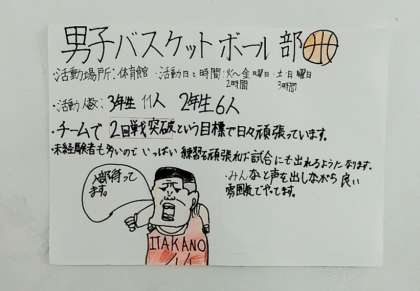 男子バスケットボール部
・活動場所:体育館 ・活動日と時間:火〜金曜日 土日曜日
2時間 3時間
・活動人数:3年生11人 2年生6人
・チームで2回戦突破という目標で日々頑張っています。
・未経験者も多いのでいっぱい練習を頑張れば試合にも出れるようになります。
・みんなと声を出しながら良い
雰囲気でやってます。
入部待って
ます。
ITAKANO